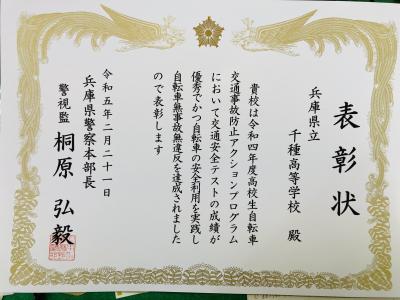 表彰状
兵庫県立
千種高等学校 殿
貴校は令和四年度高校生自転車
交通事故防止アクションプログラム
において交通安全テストの成績が
優秀でかつ自転車の安全利用を実践し
自転車無事故無違反を達成されました
ので表彰します
令和五年二月二十一日
兵庫県警察本部長
警視監 桐原 弘毅